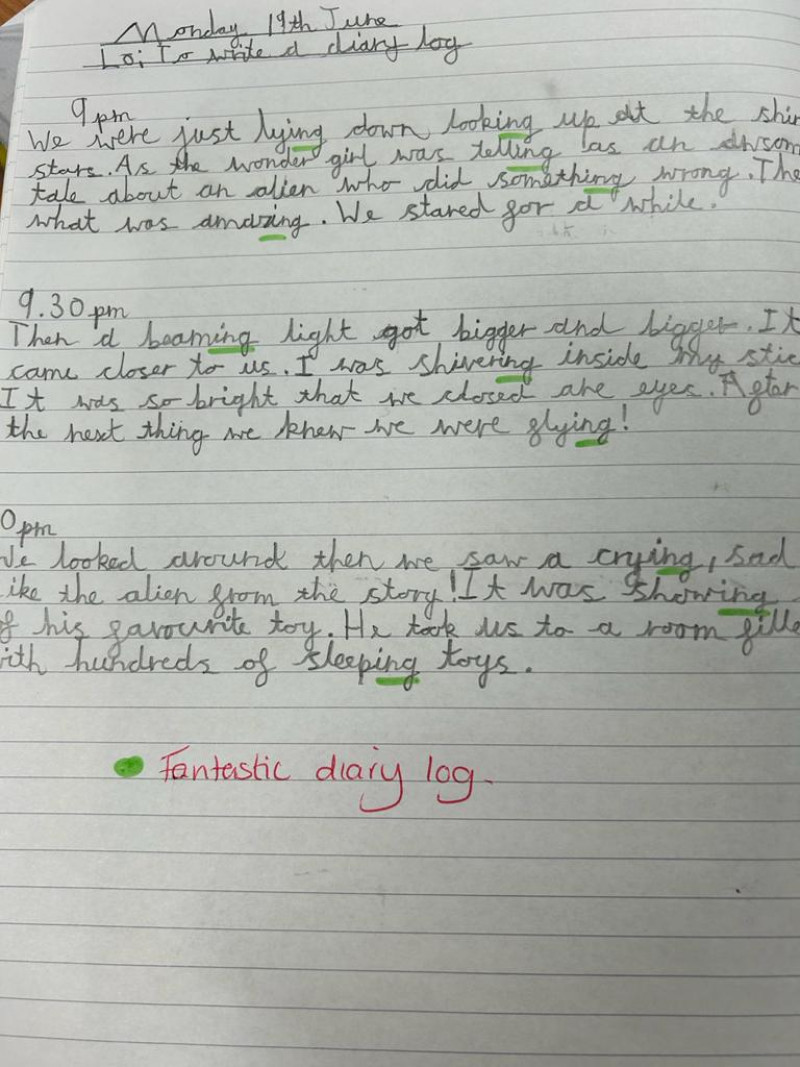 Monday 19th June
Lo: To write a diary log
9pm
We were just lying down looking up at the shin
stars. As the wonder girl was telling as an awsom
tale about an alien who did something wrong. The
what was amazing. We stared for a while.
9.30pm
Then a beaming light got bigger and bigger. It
came closer to us. I was shivering inside my
It was so bright that we closed are eyes. After
the next thing we knew we were flying!
0pm
We looked around then we saw a crying, sad
like the alien from the story! It was showing
of his favourite toy. He took us to a room fille
ith hundreds of sleeping toys.
Fantastic diary log.